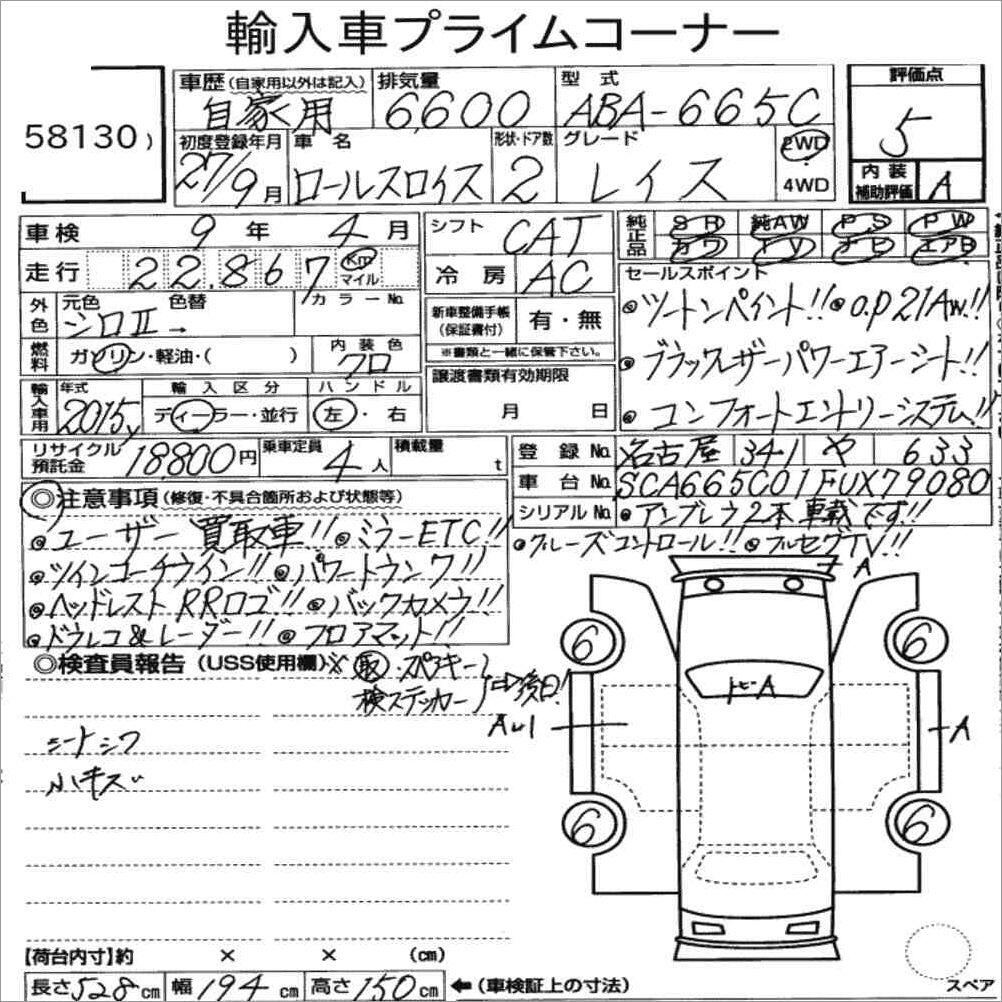 輸入車プライムコーナー
58130)
車歴(自家用以外は記入) 自家用
排気量 6,600
型式 ABA-665C
評価点 5
初度登録年月 27/9月
車名 ロールスロイス
形状・ドア数 2
グレード レイス
2WD・4WD
内装補助評価 A
車検 9年4月
シフト CAT
純正品 SR 純AW P.S PW
カワ TV ナビ エアB
走行 22,867 Km マイル
冷房 AC
外色 元色 シロII→ 色替 カラーNo.
新車整備手帳(保証書付) 有・無
※書類と一緒に保管下さい。
燃料 ガソリン・軽油・( )
内装色 クロ
輸入車用 年式 2015y
輸入区分 ディーラー・並行
ハンドル 左・右
譲渡書類有効期限 月 日
セールスポイント
◎ツートンペイント!! ◎O.P21AW.!!
◎ブラックレザーパワーエアーシート!!
◎コンフォートエントリーシステム!!
リサイクル預託金 18,800円
乗車定員 4人
積載量 t
登録No. 名古屋 341 や 633
車台No. SCA665C01FUX79080
シリアルNo. ◎アンブレラ2本車載です!!
◎クルーズコントロール!! ◎フルセグTV!!
◎注意事項(修復・不具合箇所および状態等)
◎ユーザー買取車!! ◎ミラーETC!!
◎ツインコーチライン!! ◎パワートランク!!
◎ヘッドレストRRロゴ!! ◎バックカメラ!!
◎ドラレコ&レーダー!! ◎フロアマット!!
◎検査員報告(USS使用欄)※ 取・スペアキー
検ステッカー 後日!
シートシワ
小キズ
A
トビA
AU1
A
6
6
6
6
【荷台内寸】約 × × (cm)
長さ528cm 幅194cm 高さ150cm ←(車検証上の寸法)
スペア